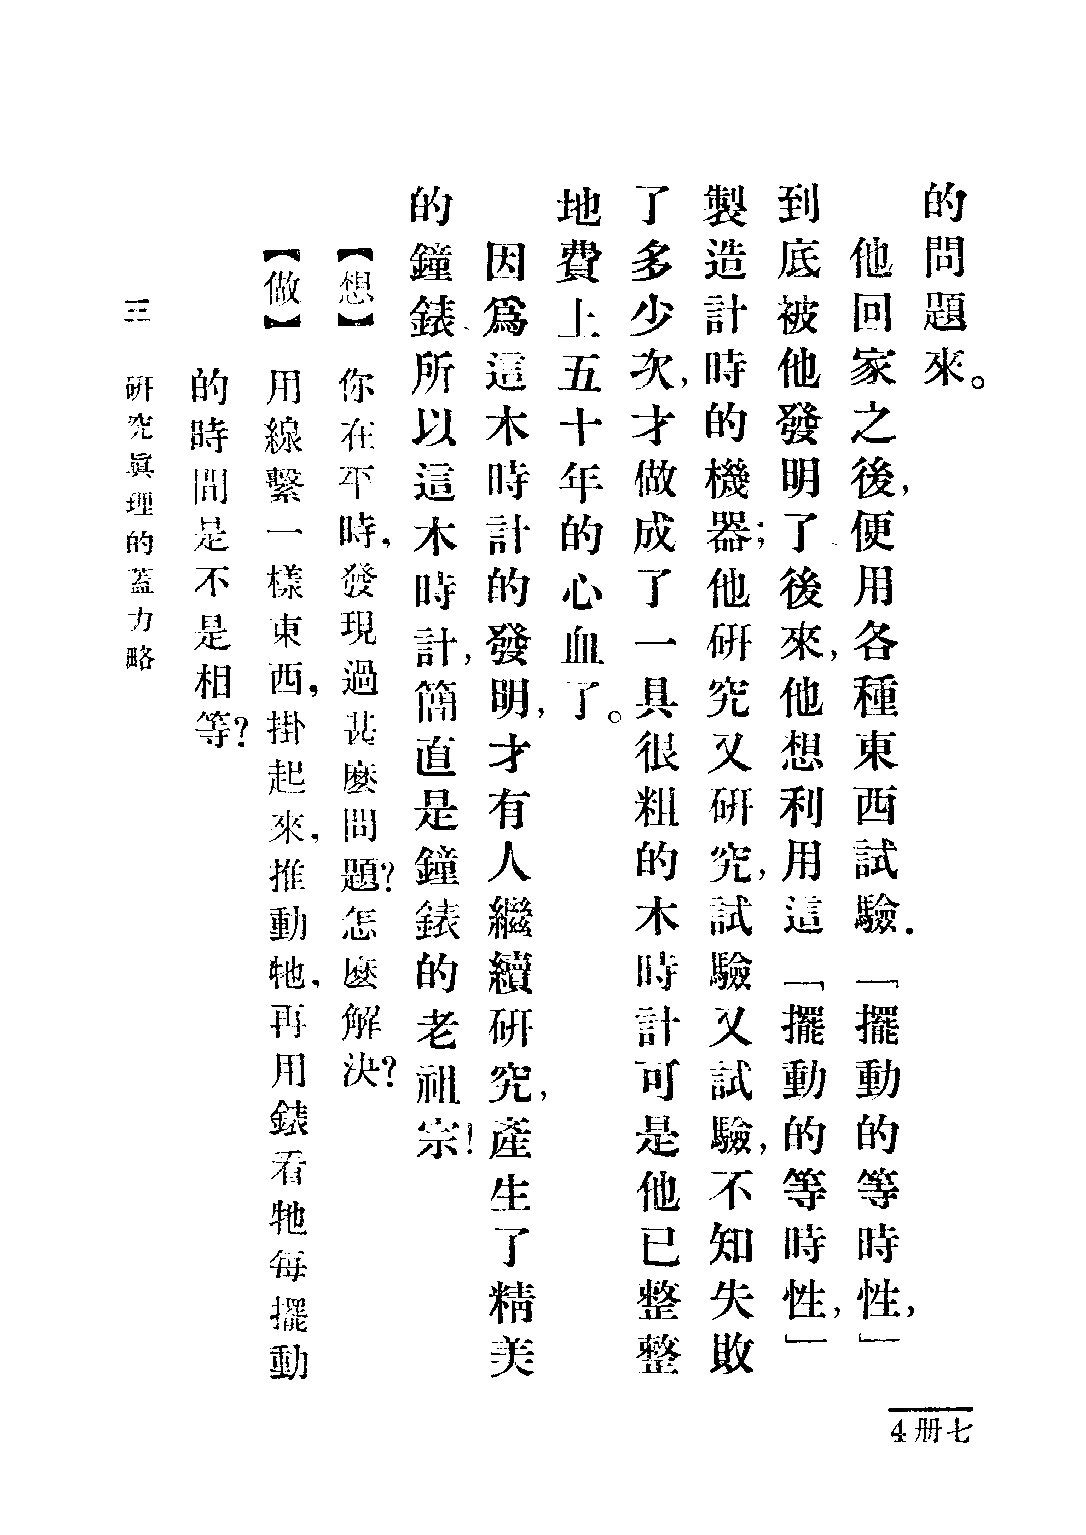 的問題來。
他回家之後，便用各種東西試驗．「擺動的等時性，」
到底被他發明了後來，他想利用這「擺動的等時性，」
製造計時的機器；他研究又研究，試驗又試驗，不知失敗
了多少次，才做成了一具很粗的木時計可是他已整整
地費上五十年的心血了。
因爲這木時計的發明，才有人繼續研究，產生了精美
的鐘錶、所以這木時計，簡直是鐘錶的老祖宗！
【想】你在平時，發現過甚麼問題？怎麼解決？
【做】用線繫一樣東西，掛起來，推動牠，再用錶看牠每擺動
的時間是不是相等？
三 研究眞理的蓋力略
4册七